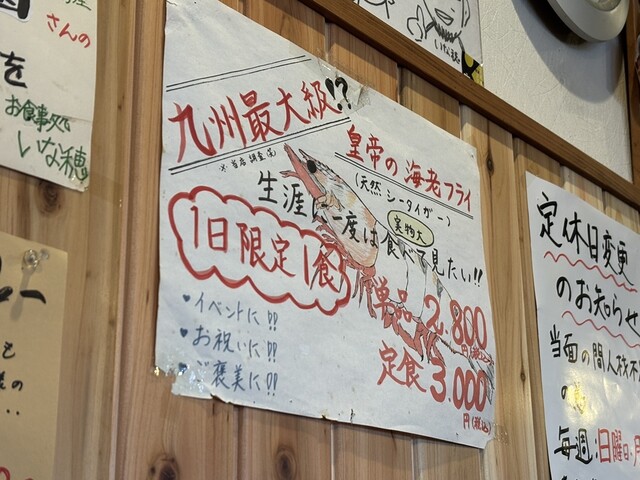 さんの
を
お食事処
いな穂
九州最大級!?
※当店調査(笑)
皇帝の海老フライ
(天然シータイガー)
生涯に一度は食べて見たい!!
実物大
1日限定1食
♥イベントに!!
♥お祝いに!!
ご褒美に!!
単品 2,800
円(税込)
定食 3,000
円(税込)
定休日変更
のお知らせ
当面の間人材不
の
毎週:日曜日、月
いな穂